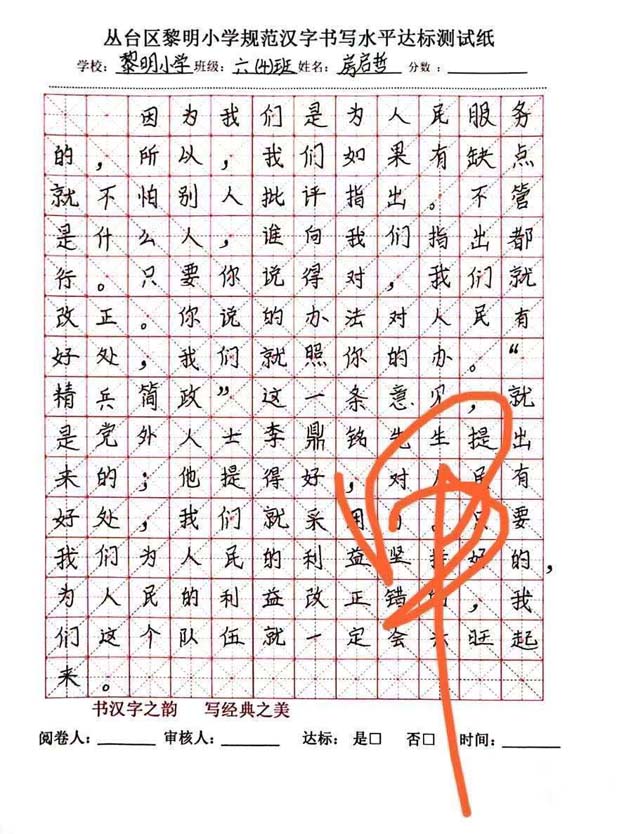 丛台区黎明小学规范汉字书写水平达标测试纸
学校：黎明小学 班级：六(4)班 姓名：房启哲 分数：
因为我们是为人民服务
的，所以，我们如果有缺点
就不怕别人批评指出。不管
是什么人，谁向我们指出都
行。只要你说得对，我们就
改正。你说的办法对人民有
好处，我们就照你的办。“
精兵简政”这一条意见，就
是党外人士李鼎铭先生提出
来的；他提得好，对人民有
好处，我们就采用了。只要
我们为人民的利益坚持好的，
为人民的利益改正错的，我
们这个队伍就一定会兴旺起
来。
书汉字之韵 写经典之美
阅卷人： 审核人： 达标： 是□ 否□ 时间：